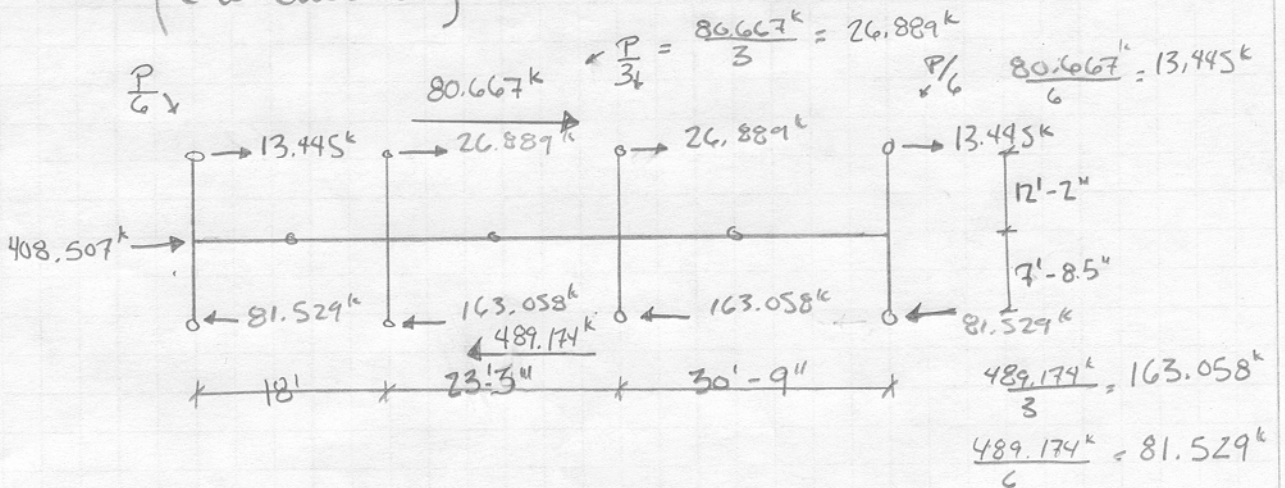 P/3 = 80.667ᵏ/3 = 26.889ᵏ
P/6
80.667ᵏ
P/6 80.667ᵏ/6 = 13,445ᵏ
13.445ᵏ
26.889ᵏ
26,889ᵏ
13.445ᵏ
12'-2"
408.507ᵏ
7'-8.5"
81.529ᵏ
163.058ᵏ
163.058ᵏ
81.529ᵏ
489.174ᵏ
18'
23'-3"
30'-9"
489.174ᵏ/3 = 163.058ᵏ
489.174ᵏ/6 = 81.529ᵏ